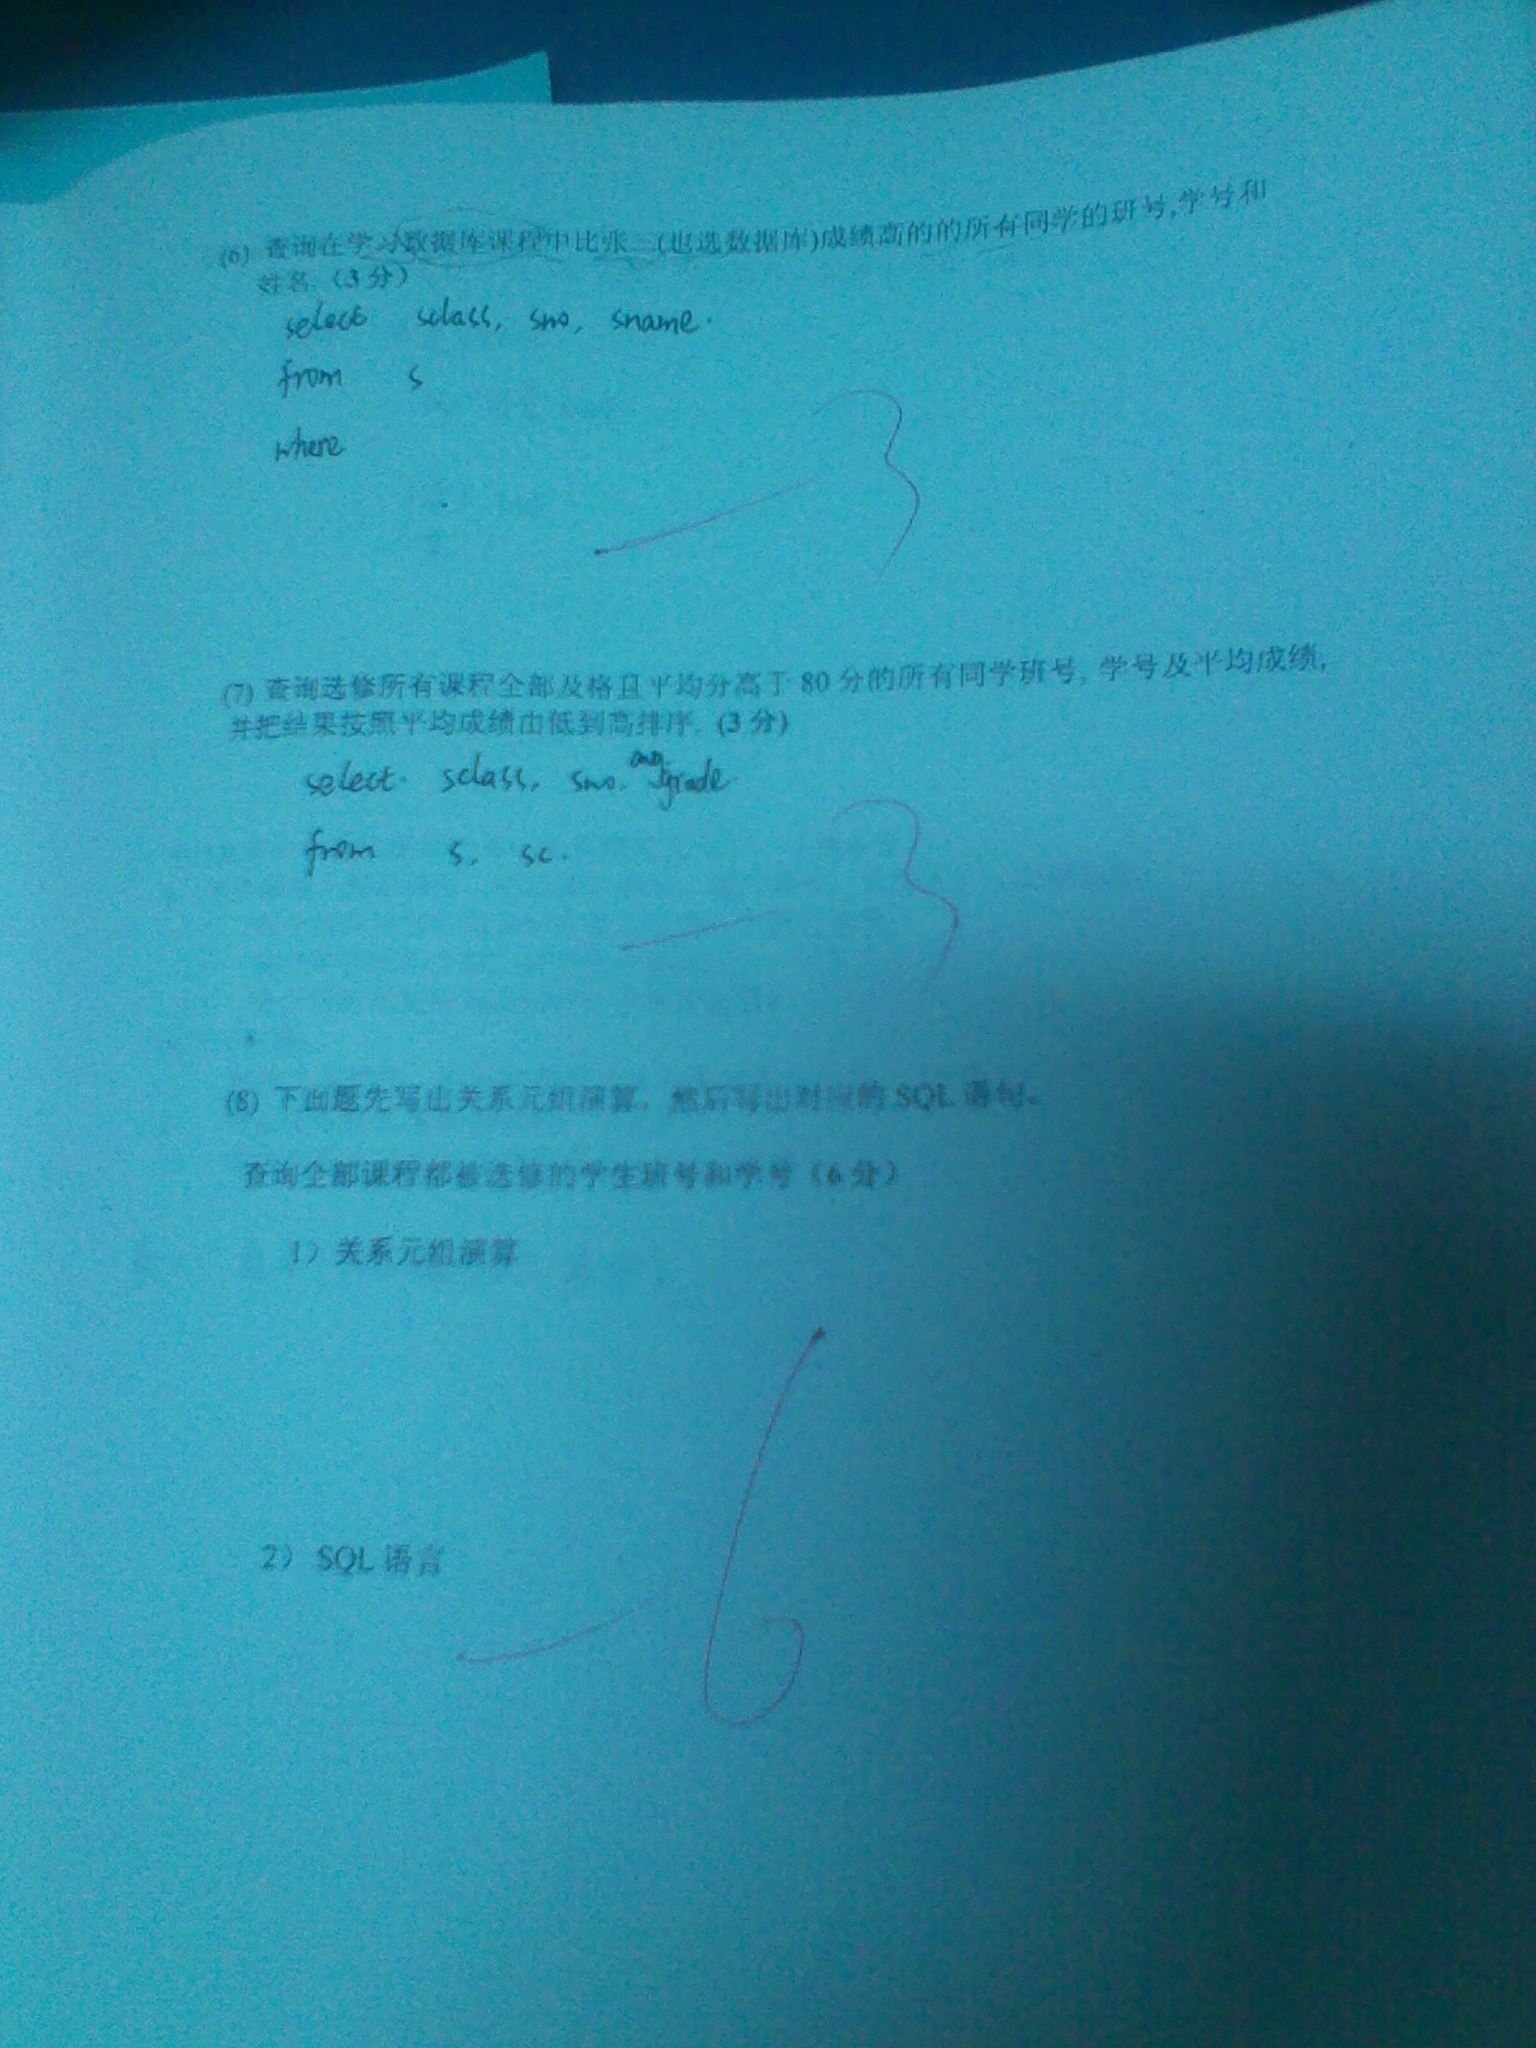 (6) 查询在学习数据库课程中比张三(也选数据库)成绩高的的所有同学的班号,学号和
姓名.(3分)
select sclass, sno, sname.
from s
where
-3
(7) 查询选修所有课程全部及格且平均分高于80分的所有同学班号, 学号及平均成绩,
并把结果按照平均成绩由低到高排序. (3分)
select. sclass, sno, avg.grade.
from s, sc.
-3
(8) 下面题先写出关系元组演算，然后写出对应的SQL语句。
查询全部课程都被选修的学生班号和学号（6分）
1）关系元组演算
2） SQL语言
-6